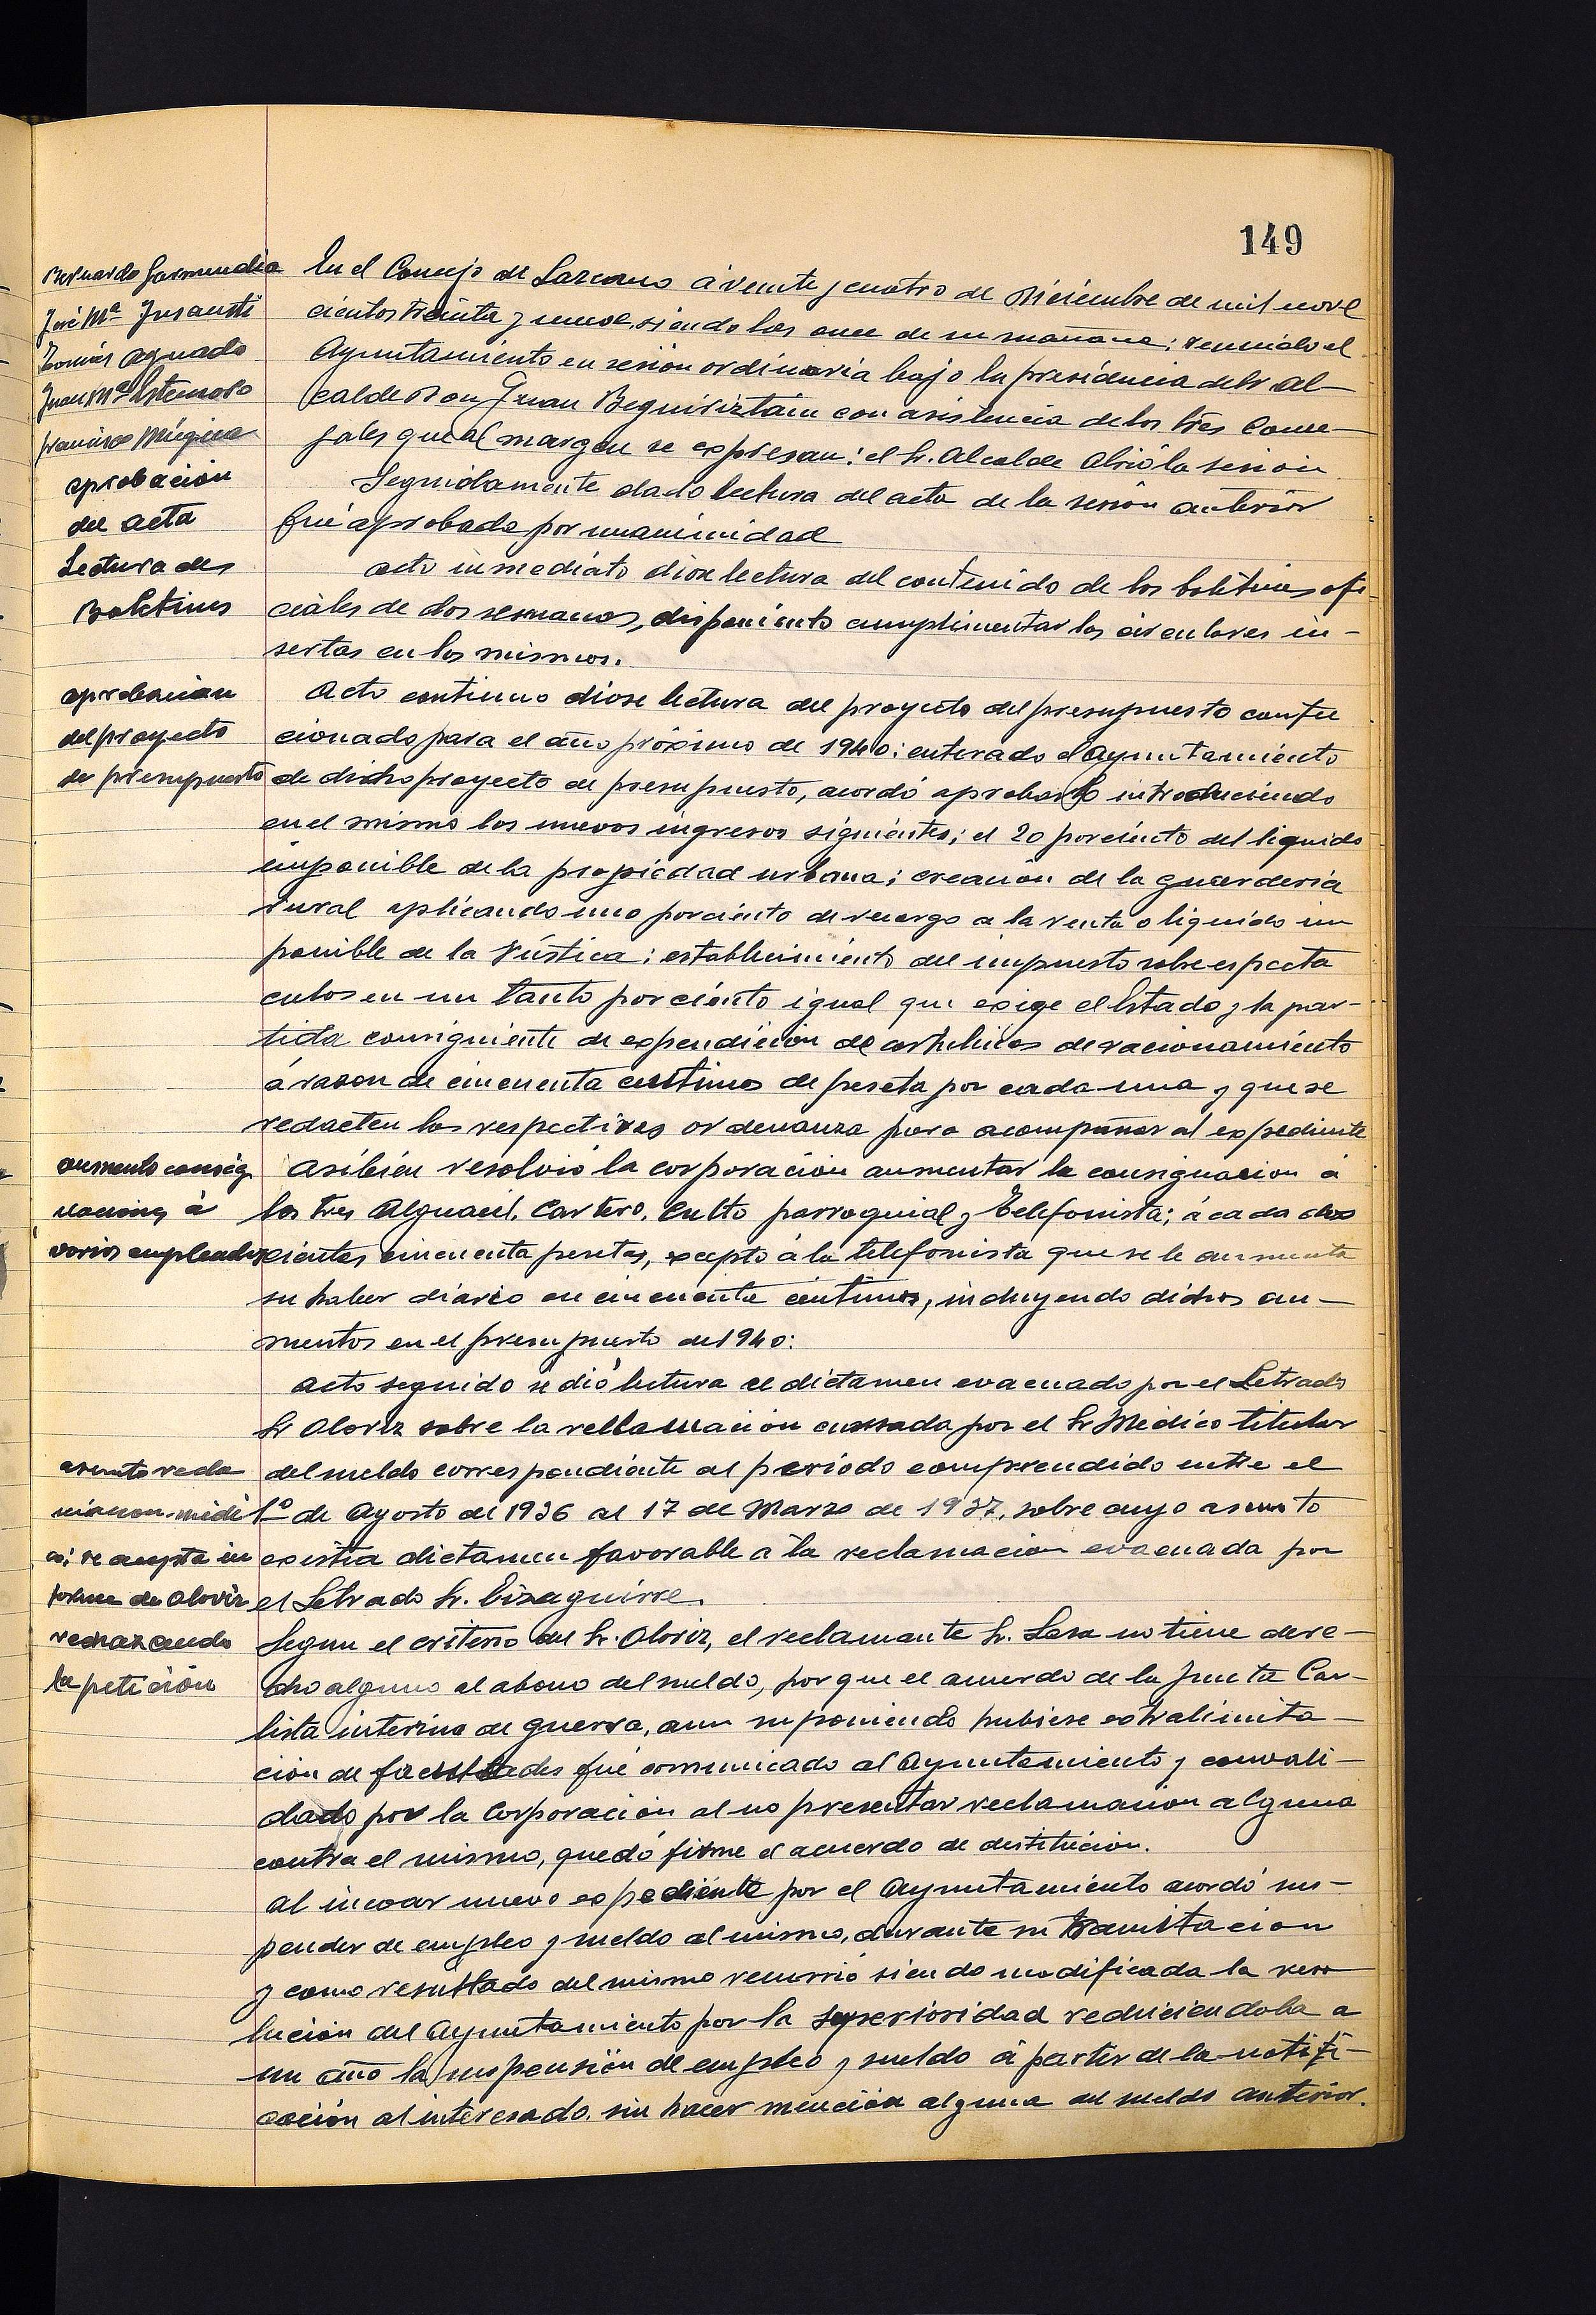 149
Bernardo Garmendia
José Mª Insausti
Tomás Aguado
Juan Mª Estensoro
Francisco Múgica
aprobación
del acta
Lectura de
Boletines
aprobación
del proyecto
de presupuesto
aumento consig
naciones á
varios empleados
asunto recla
mación médi
co; se acepta in
forme de Aloriz
rechazando
la petición
En el Concejo de Lazcano á veinte y cuatro de Diciembre de mil nove
cientos treinta y nueve, siendo las once de su mañana; reunido el
Ayuntamiento en sesión ordinaria bajo la presidencia del Sr. Al—
calde Don Juan Beguiriztain con asistencia de los tres Conce—
jales que al margen se expresan: el Sr. Alcalde Abrió la sesión
Seguidamente dado lectura del acta de la sesión anterior
fué aprobada por unanimidad
acto inmediato diose lectura del contenido de los boletines ofi
ciales de dos semanas, disponiento cumplimentar las circulares in-
sertas en los mismos.
Acto continuo diose lectura del proyecto del presupuesto confec
cionado para el año próximo de 1940: enterado el Ayuntamiento
de dicho proyecto de presupuesto, acordó aprobarlo introduciendo
en el mismo los nuevos ingresos siguientes; el 20 porciento del liquido
imponible de la propiedad urbana; creación de la guarderia
rural aplicando uno porciento de recargo a la renta o liquido im
ponible de la Rústica; establecimiento del impuesto sobre especta
culos en un tanto por ciento igual que exige el Estado y la par-
tida consiguiente de expendición de cartulicas de racionamiento
á razon de cincuenta centimos de peseta por cada una y que se
redacten las respectivas ordenanza para acompañar al expediente
Asibien resolvió la corporación aumentar la consignacion á
los tres Alguacil. Cartero. Culto parroquial y Telefonista; á cada dos
cientas cincuenta pesetas, excepto á la telefonista que se le aumenta
su haber diario en cincuenta centimos, incluyendo dichos au—
mentos en el presupuesto de 1940:
Acto seguido se dió lectura el dictamen evacuado por el Letrado
Sr Aloriz sobre la rellamación cursada por el Sr Médico titular
del sueldo correspondiente al periodo comprendido entre el
1º de Agosto de 1936 al 17 de Marzo de 1937, sobre cuyo asunto
existia dictamen favorable a la reclamacion evacuada por
el Letrado Sr. Eizaguirre.
Segun el criterio del Sr. Aloriz, el reclamante Sr. Lasa no tiene dere—
cho alguno al abono del sueldo, por que el acuerdo de la Junta Car-
lista interina de guerra, aun suponiendo hubiese extralimita—
ción de facultades fué comunicado al Ayuntamiento y convali—
dado por la Corporación al no presentar reclamacion alguna
contra el mismo, quedó firme el acuerdo de destitución.
Al incoar nuevo expediente por el Ayuntamiento acordó sus-
pender de empleo y sueldo al mismo, durante su tramitacion
y como resultado del mismo recurrió siendo modificada la reso
lución del Ayuntamiento por la Superioridad reduciendola a
un año la suspensión de empleo y sueldo á partir de la notifi—
cación al interesado. sin hacer mención alguna al sueldo anterior.